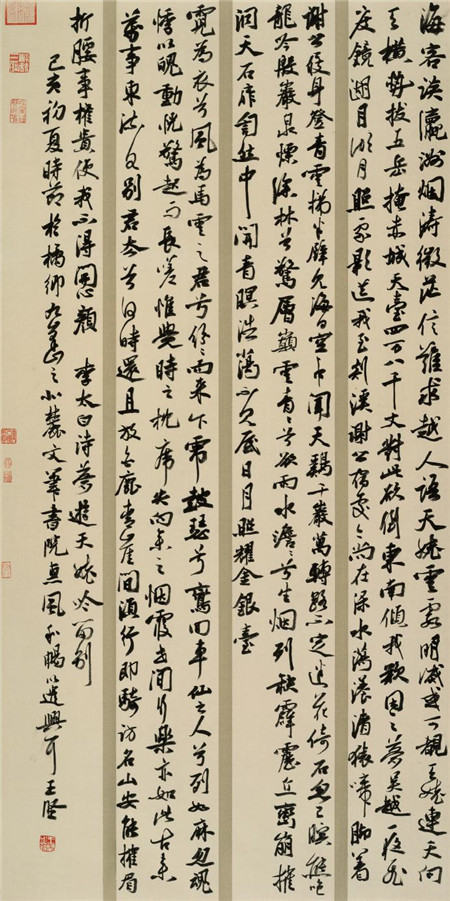 海客談瀛洲烟濤微茫信難求越人語天姥雲霓明滅或可覩天姥連天向
天橫勢拔五岳掩赤城天臺四万八千丈對此欲倒東南傾我欲因之夢吳越一夜飛
度鏡湖月湖月照我影送我至剡溪謝公宿處今尚在淥水蕩漾清猿啼脚著
謝公屐身登青雲梯半壁見海日空中聞天鷄千巖萬轉路不定迷花倚石忽已暝熊咆
龍吟殷巖泉慄深林兮驚層巔雲青青兮欲雨水澹澹兮生烟列缺霹靂丘巒崩摧
洞天石扉訇然中開青暝浩蕩不見底日月照耀金銀臺
霓為衣兮風為馬雲之君兮紛紛而來下虎鼓瑟兮鸞回車仙之人兮列如麻忽魂
悸以魄動怳驚起而長嗟惟覺時之枕席失向來之烟霞世間行樂亦如此古來
萬事東流水別君去兮何時還且放白鹿青崖間須行即騎訪名山安能摧眉
折腰事權貴使我不得開心顏 李太白詩夢遊天姥吟留別
己亥初夏時節於橘鄉九峰山之小麓文筆書院惠風和暢以遣興耳王堅